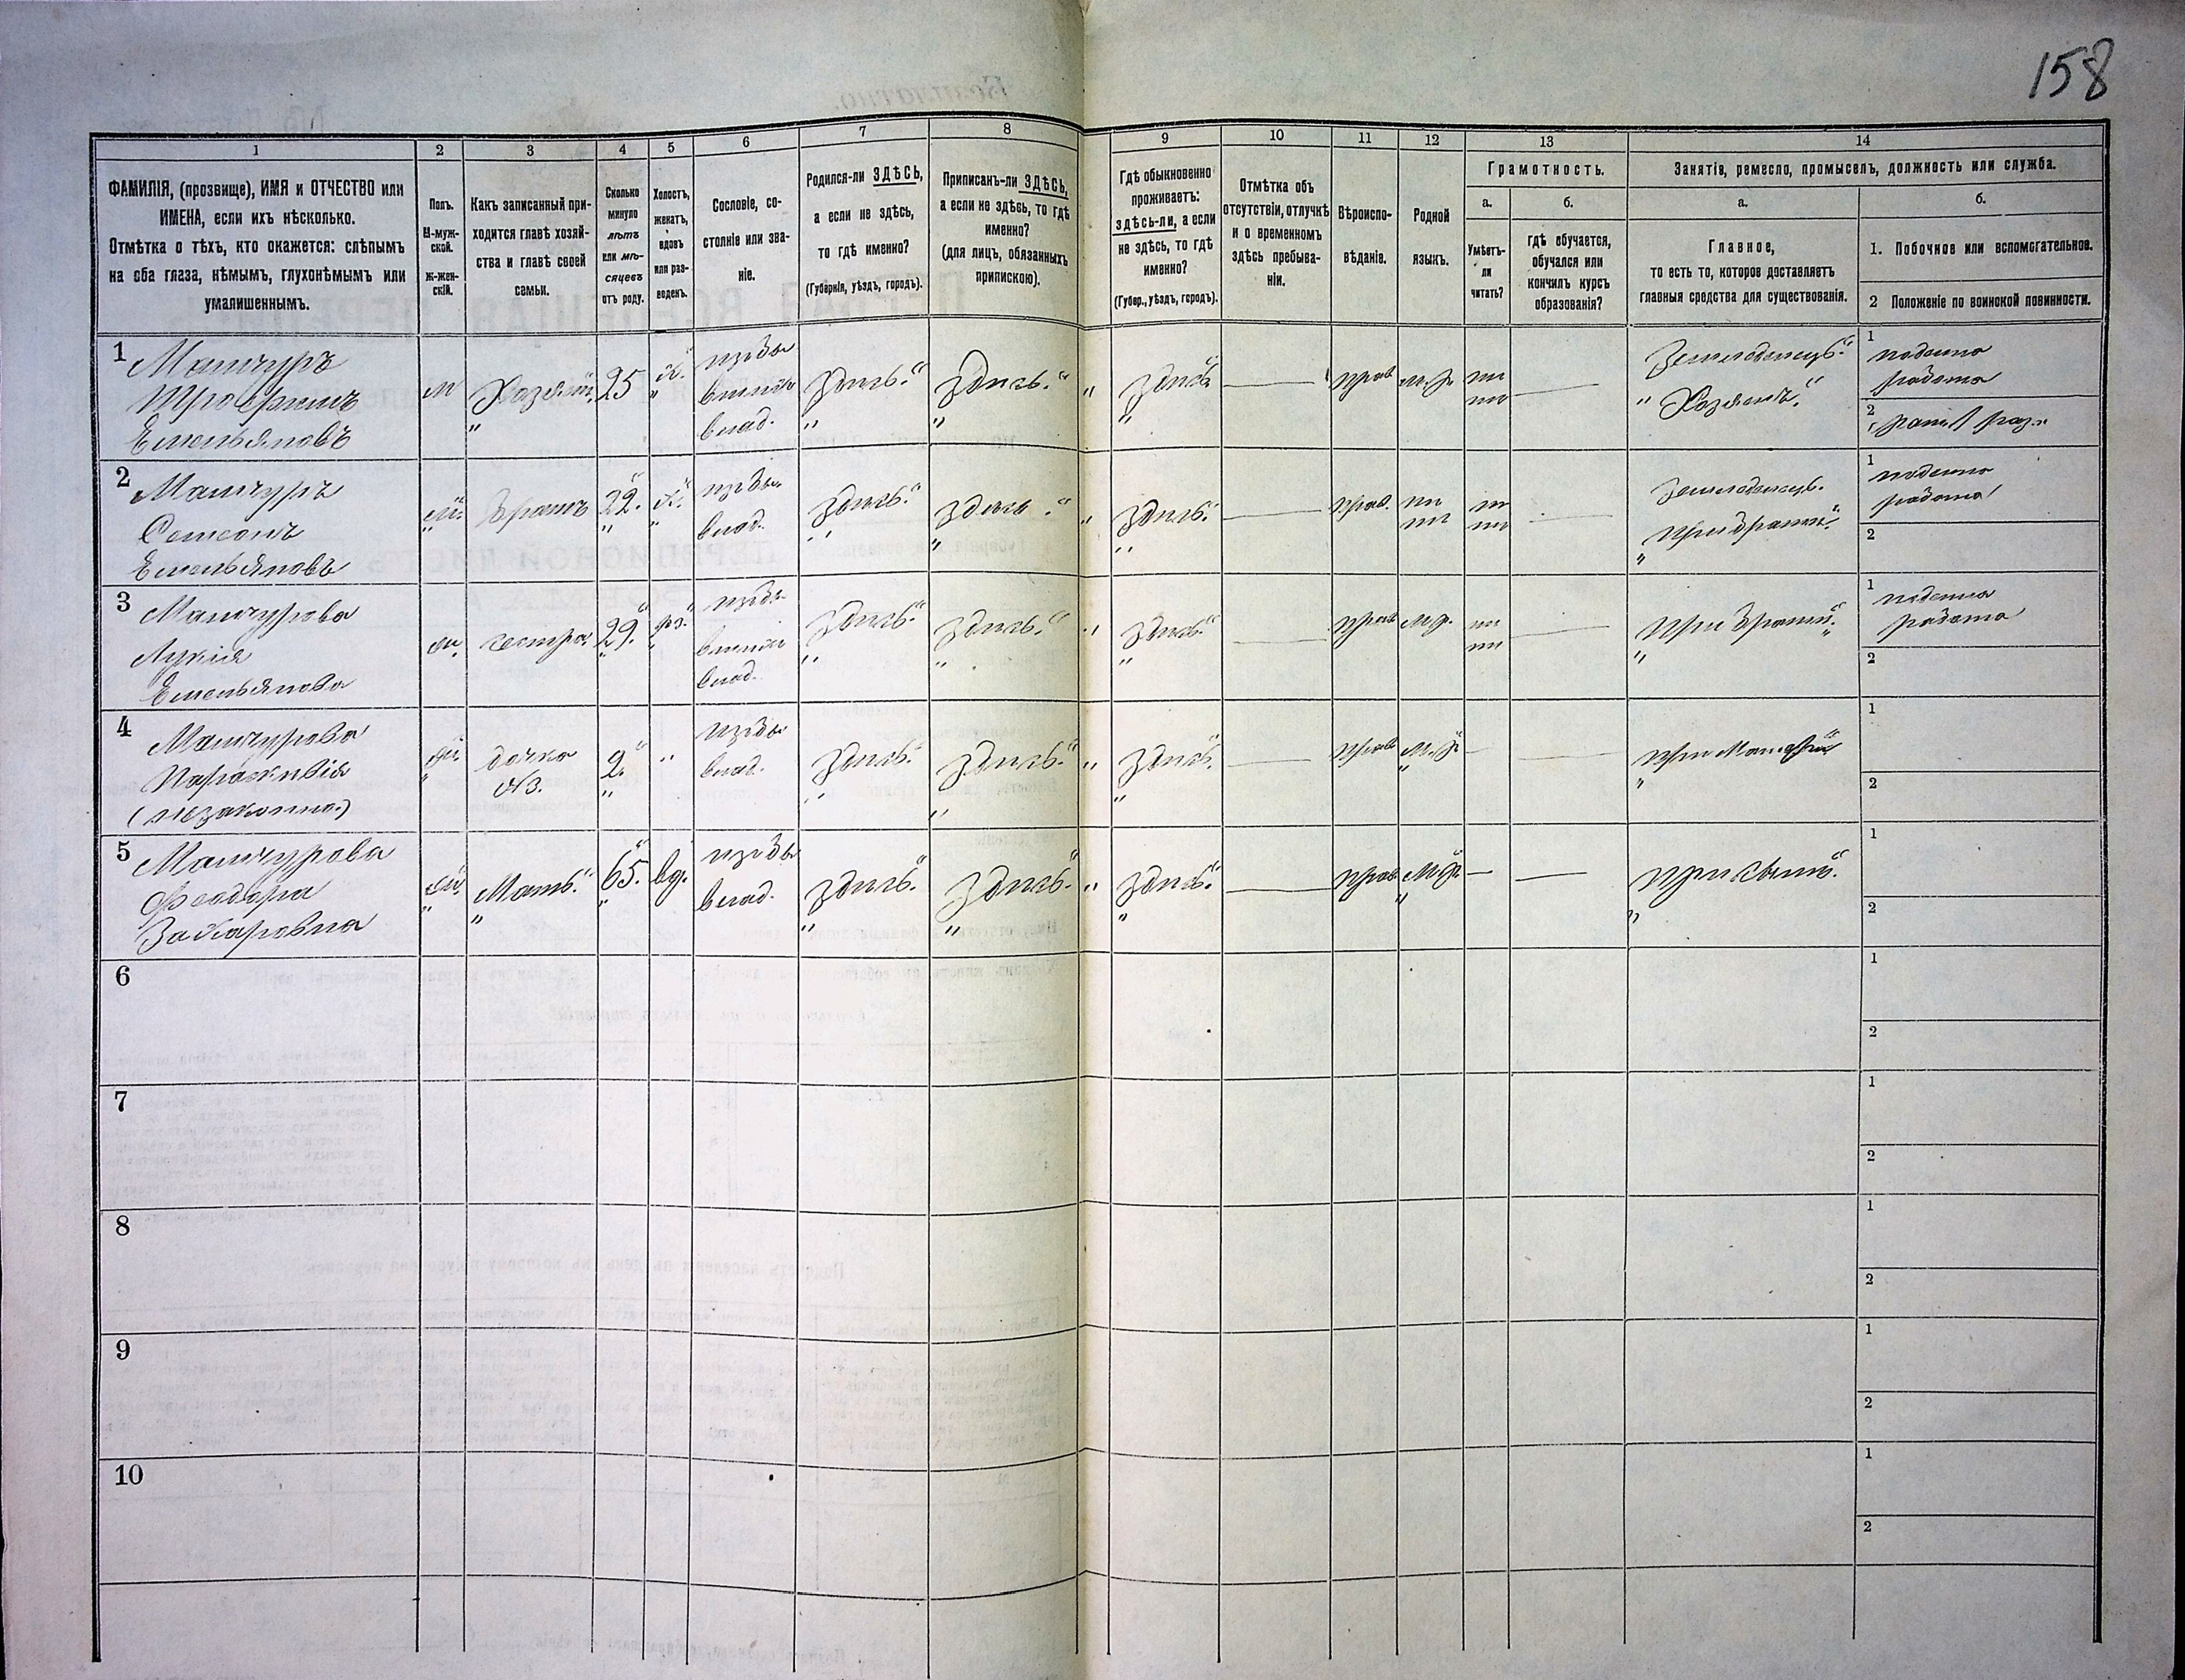 158
1
2
3
4
5
6
7
8
9
10
11
12
13
14
ФАМИЛІЯ, (прозвище), ИМЯ и ОТЧЕСТВО или
ИМЕНА, если ихъ нѣсколько.
Отмѣтка о тѣхъ, кто окажется: слѣпымъ
на оба глаза, нѣмымъ, глухонѣмымъ или
умалишеннымъ.
Полъ.
М-муж-
ской.
ж-жен-
скій.
Какъ записанный при-
ходится главѣ хозяй-
ства и главѣ своей
семьи.
Сколько
минуло
лѣтъ
или мѣ-
сяцевъ
отъ роду.
Холостъ,
женатъ,
вдовъ
или раз-
веденъ.
Сословіе, со-
стояніе или зва-
ніе.
Родился-ли ЗДѢСЬ,
а если не здѣсь,
то гдѣ именно?
(Губернія, уѣздъ, городъ).
Приписанъ-ли ЗДѢСЬ,
а если не здѣсь, то гдѣ
именно?
(для лицъ, обязанныхъ
припискою).
Гдѣ обыкновенно
проживаетъ:
здѣсь-ли, а если
не здѣсь, то гдѣ
именно?
(Губер., уѣздъ, городъ).
Отмѣтка объ
отсутствіи, отлучкѣ
и о временномъ
здѣсь пребыва-
ніи.
Вѣроиспо-
вѣданіе.
Родной
языкъ.
Грамотность.
а.
Умѣетъ-
ли
читать?
б.
гдѣ обучается,
обучался или
кончилъ курсъ
образованія?
Занятіе, ремесло, промыселъ, должность или служба.
а.
Главное,
то есть то, которое доставляетъ
главныя средства для существованія.
б.
1. Побочное или вспомогательное.
2 Положеніе по воинской повинности.
1 Манчуръ
Трофимъ
Емельяновъ
м
Хозяинъ
25
х.
влад.
здѣсь
здѣсь
здѣсь
прав
м.р.
Земледелецъ
Хозяинъ
1 поденно
работа
2
2 Манчуръ
Самсонъ
Емельяновъ
братъ
22
х.
влад.
здѣсь
здѣсь
здѣсь
прав.
Земледелецъ
при братѣ
1 поденно
работа
2
3 Манчурова
Лукія
Емельянова
сестра
29
влад.
здѣсь
здѣсь
здѣсь
прав
м.р.
при братѣ
1 поденно
работа
2
4 Манчурова
Параскивія
(незаконно.)
дочка
№3.
2
влад.
здѣсь
здѣсь
здѣсь
прав
м.р.
при Матери
1
2
5 Манчурова
Феодора
Захаровна
Мать
65.
вд.
влад.
здѣсь
здѣсь
здѣсь
прав
м.р.
при сынѣ
1
2
6
1
2
7
1
2
8
1
2
9
1
2
10
1
2